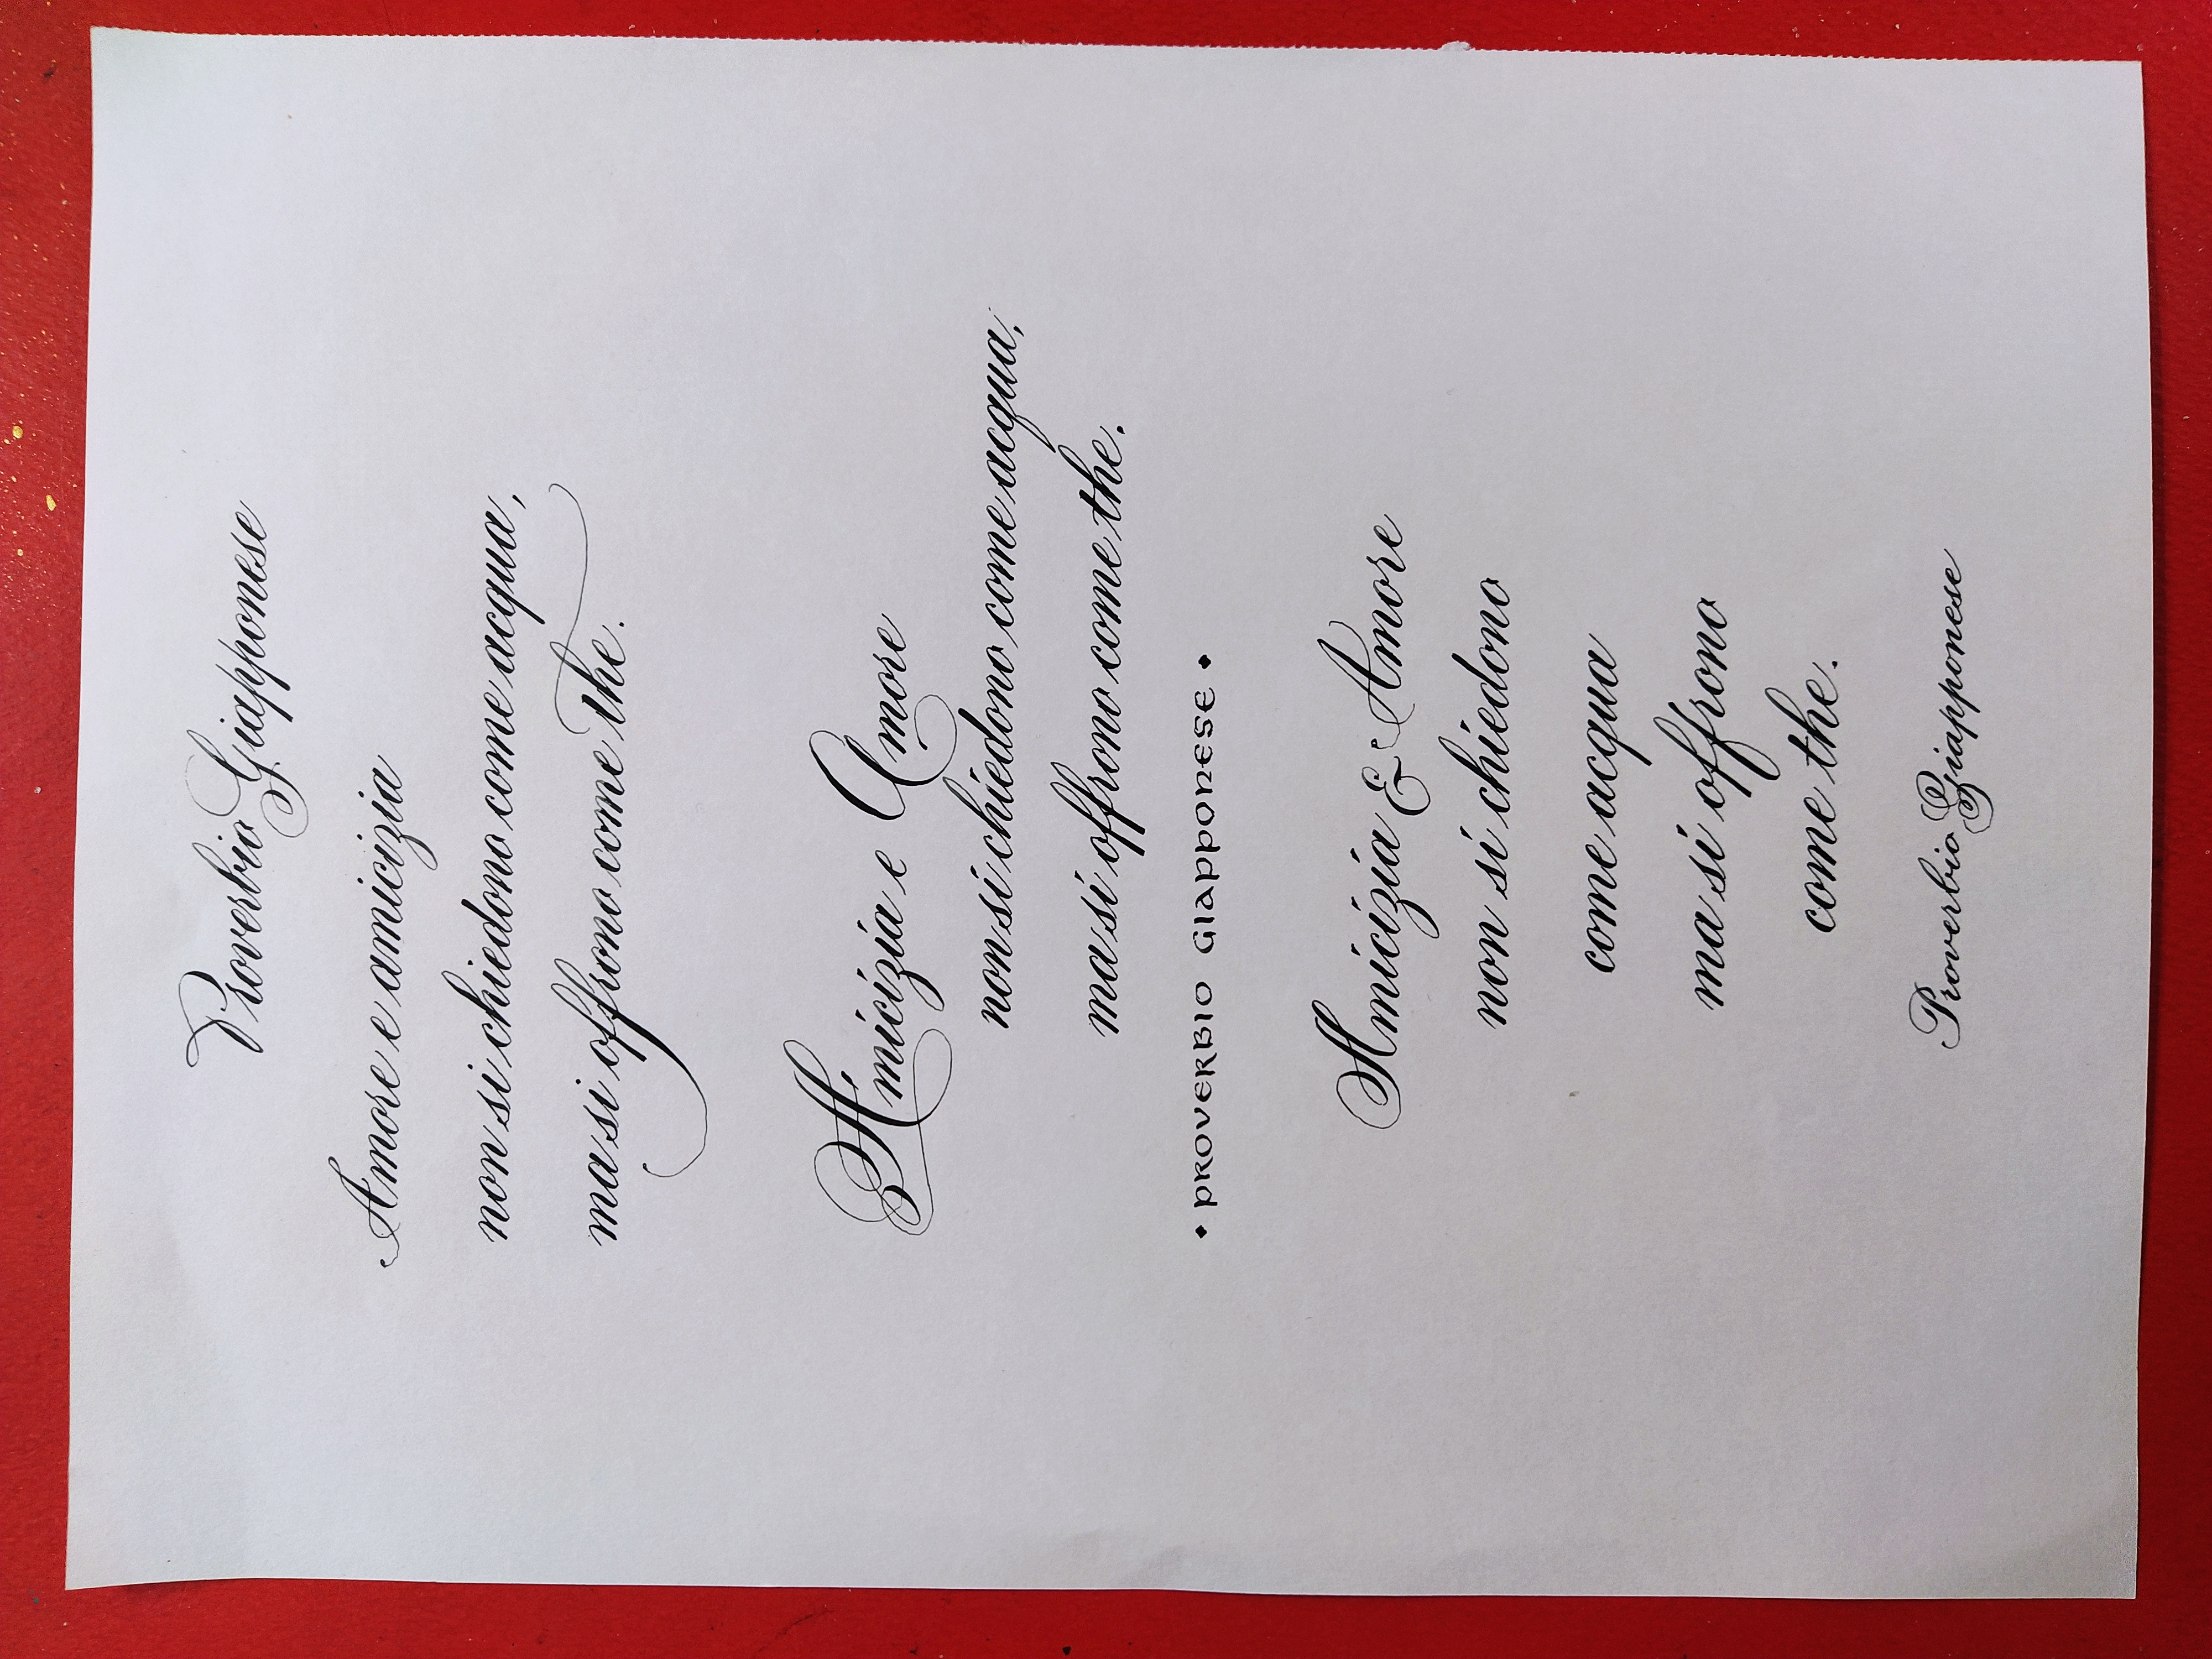 Proverbio Giapponese
Amore e amicizia
non si chiedono come acqua,
ma si offrono come the.
Amicizia e Amore
non si chiedono come acqua,
ma si offrono come the.
• PROVERBIO GIAPPONESE •
Amicizia & Amore
non si chiedono
come acqua
ma si offrono
come the.
Proverbio Giapponese